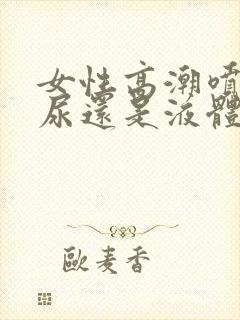 女性高潮噴
尿還是液體
歐麦香